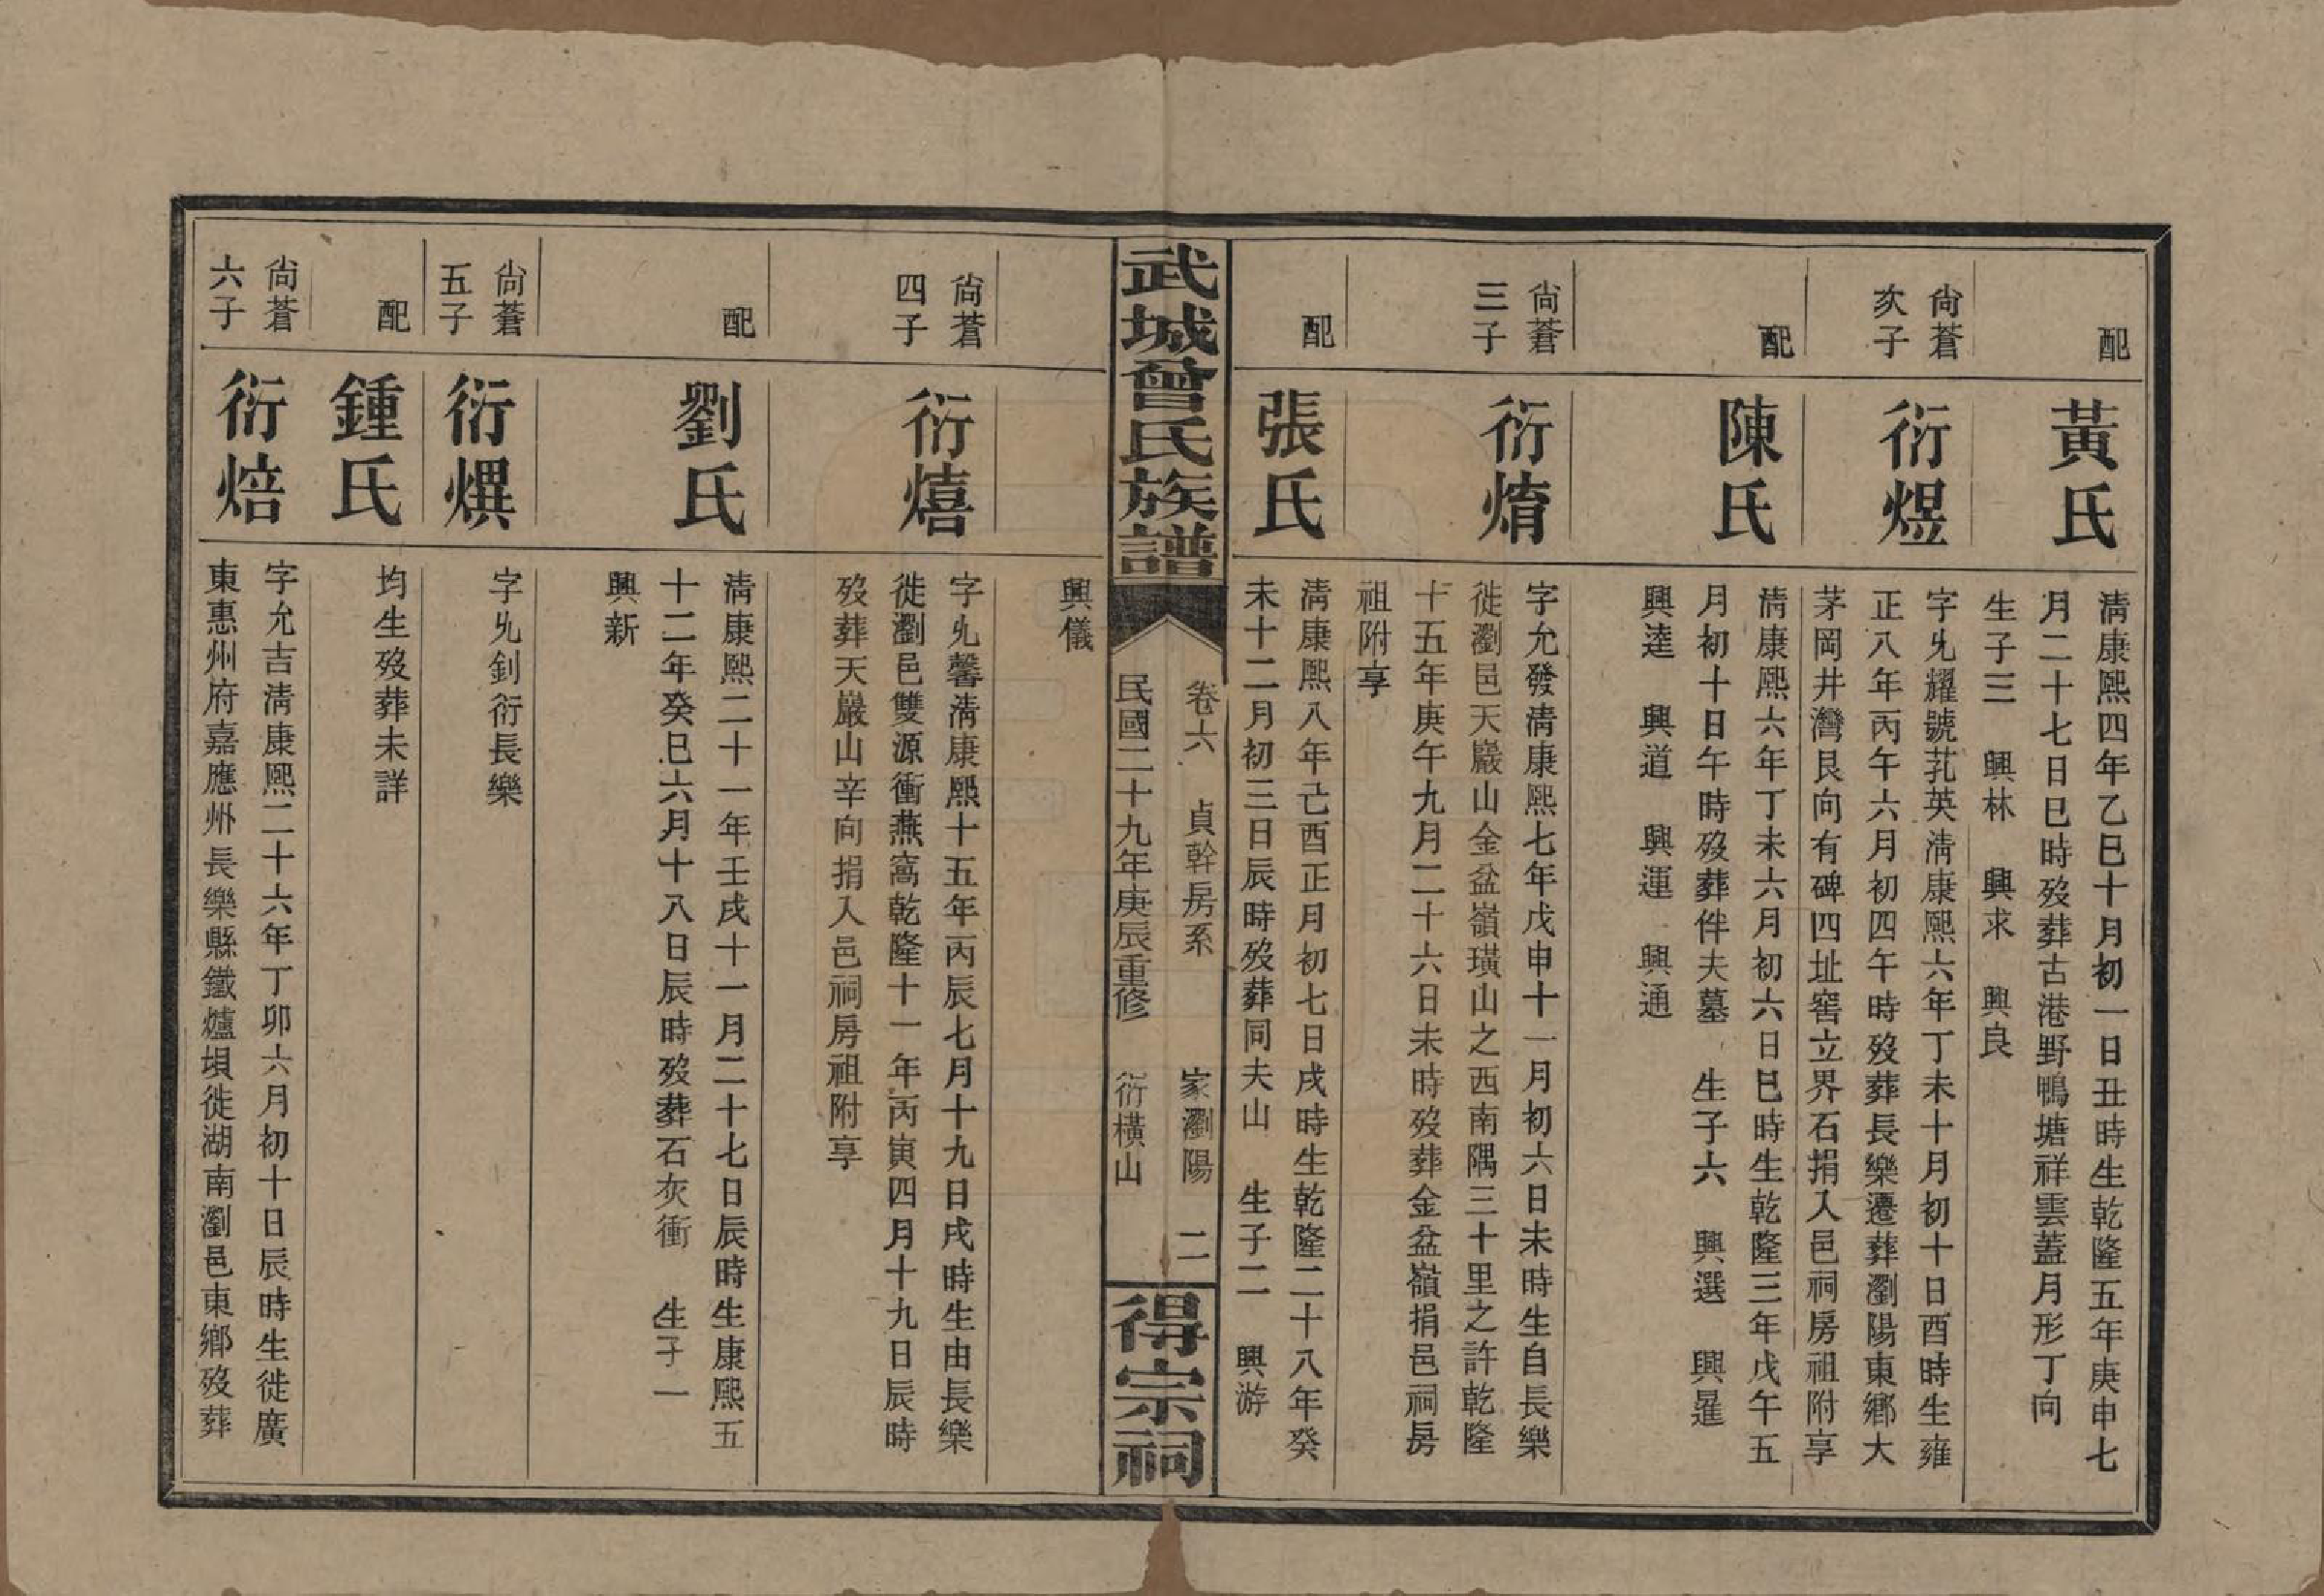 配
黃氏
淸康熙四年乙巳十月初一日丑時生乾隆五年庚申七
月二十七日巳時歿葬古港野鴨塘祥雲蓋月形丁向
生子三　興林　興求　興良
尙蒼
次子
衍煜
字允耀號芤英淸康熙六年丁未十月初十日酉時生雍
正八年丙午六月初四午時歿葬長樂遷葬瀏陽東鄉大
茅岡井灣艮向有碑四址窖立界石捐入邑祠房祖附享
配
陳氏
淸康熙六年丁未六月初六日巳時生乾隆三年戊午五
月初十日午時歿葬伴夫墓　生子六　興選　興暹
興逵　興道　興運　興通
尙蒼
三子
衍焴
字允發淸康熙七年戊申十一月初六日未時生自長樂
徙瀏邑天巖山金盆嶺璜山之西南隅三十里之許乾隆
十五年庚午九月二十六日未時歿葬金盆嶺捐邑祠房
祖附享
配
張氏
淸康熙八年己酉正月初七日戌時生乾隆二十八年癸
未十二月初三日辰時歿葬同夫山　生子二　興游
武城曾氏族譜
卷六　貞幹房系　家瀏陽　二
民國二十九年庚辰重修　衍橫山
得宗祠
興儀
尙蒼
四子
衍熺
字允馨淸康熙十五年丙辰七月十九日戌時生由長樂
徙瀏邑雙源衝燕窩乾隆十一年丙寅四月十九日辰時
歿葬天巖山辛向捐入邑祠房祖附享
配
劉氏
淸康熙二十一年壬戌十一月二十七日辰時生康熙五
十二年癸巳六月十八日辰時歿葬石灰衝　生子一
興新
尙蒼
五子
衍熼
字允釗衍長樂
配
鍾氏
均生歿葬未詳
尙蒼
六子
衍焙
字允吉淸康熙二十六年丁卯六月初十日辰時生徙廣
東惠州府嘉應州長樂縣鐵爐垻徙湖南瀏邑東鄉歿葬